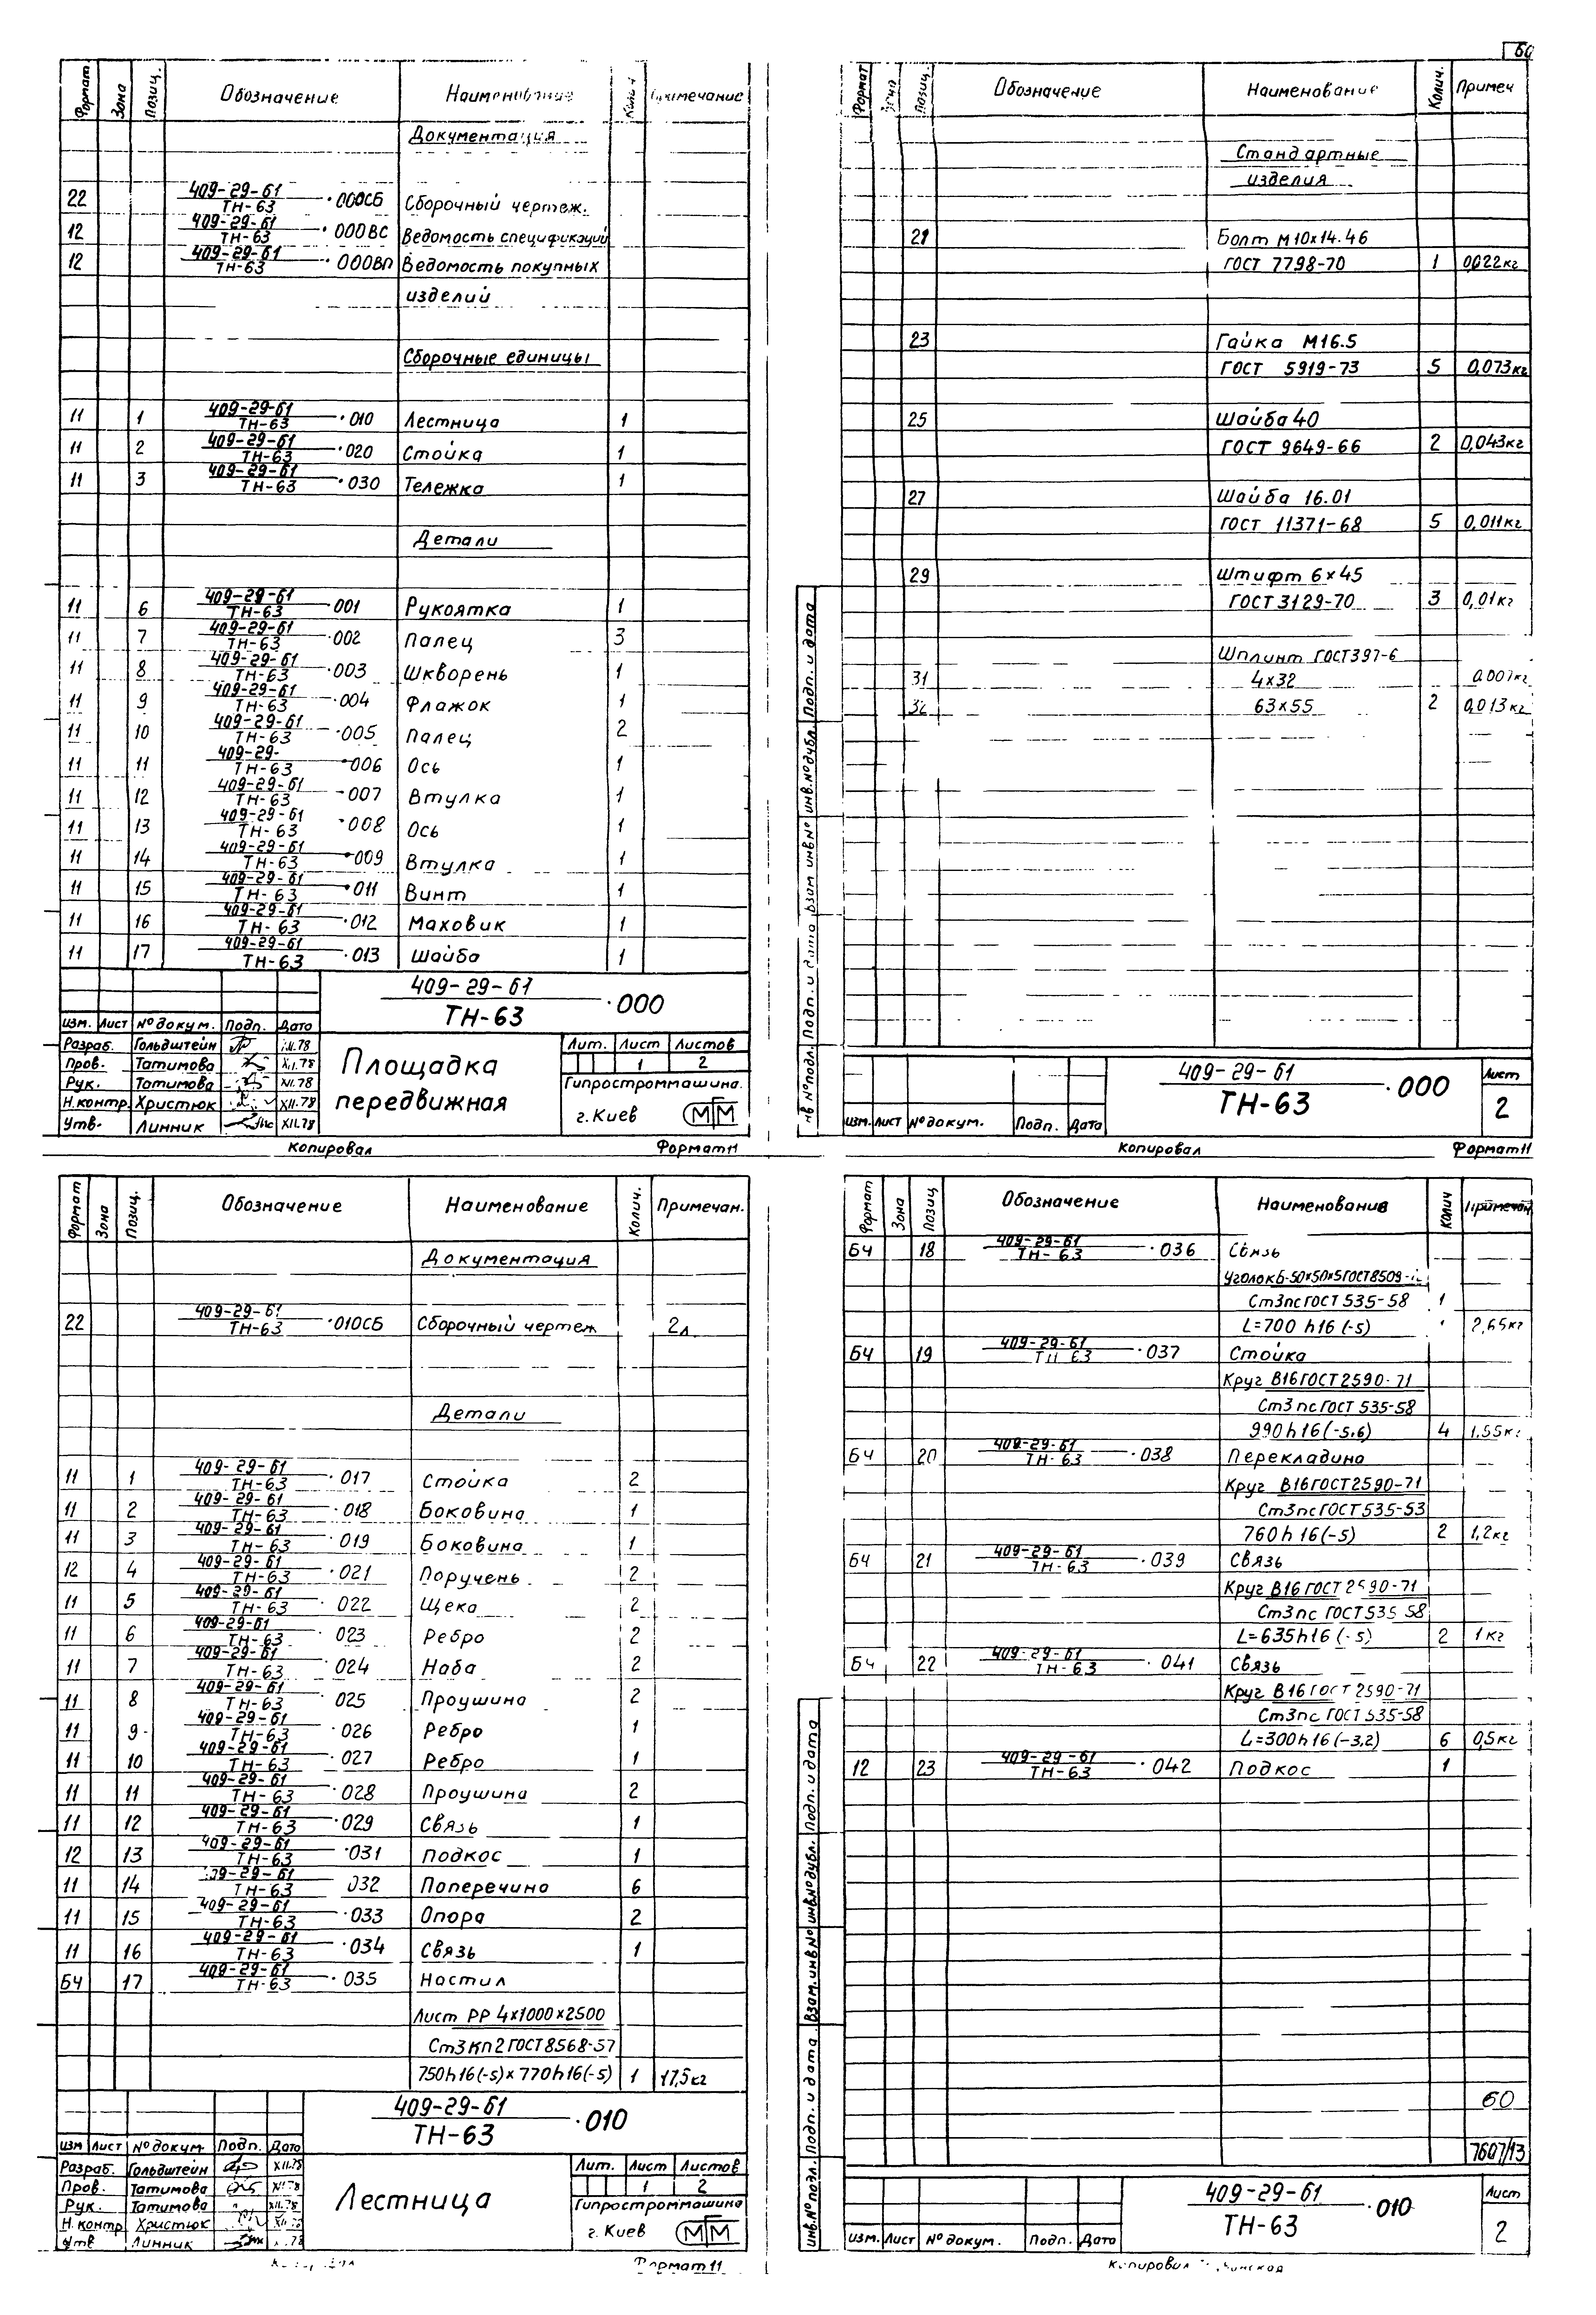 60
Формат Зона Позиц. Обозначение Наименование Примечание
Документация
22 409-29-61/ТН-63 ·000СБ Сборочный чертеж.
12 409-29-61/ТН-63 ·000ВС Ведомость спецификаций
12 409-29-61/ТН-63 ·000ВП Ведомость покупных
изделий
Сборочные единицы
11 1 409-29-61/ТН-63 ·010 Лестница 1
11 2 409-29-61/ТН-63 ·020 Стойка 1
11 3 409-29-61/ТН-63 ·030 Тележка 1
Детали
11 6 409-29-61/ТН-63 ·001 Рукоятка 1
11 7 409-29-61/ТН-63 ·002 Палец 3
11 8 409-29-61/ТН-63 ·003 Шкворень 1
11 9 409-29-61/ТН-63 ·004 Флажок 1
11 10 409-29-61/ТН-63 ·005 Палец 2
11 11 409-29-/ТН-63 ·006 Ось 1
11 12 409-29-61/ТН-63 ·007 Втулка 1
11 13 409-29-61/ТН-63 ·008 Ось 1
11 14 409-29-61/ТН-63 ·009 Втулка 1
11 15 409-29-61/ТН-63 ·011 Винт 1
11 16 409-29-61/ТН-63 ·012 Маховик 1
11 17 409-29-61/ТН-63 ·013 Шайба 1
409-29-61/ТН-63 ·000
Изм. Лист № докум. Подп. Дата
Разраб. Гольдштейн
Пров. Татимова XII.78
Рук. Татимова XII.78
Н.контр. Христюк XII.78
Утв. Линник XII.78
Площадка
передвижная
Лит. Лист Листов
1 2
Гипростроммашина.
г. Киев МГМ
Копировал Формат 11
Формат Позиц. Обозначение Наименование Колич. Примеч
Стандартные
изделия
21 Болт М10х14.46
ГОСТ 7798-70 1 0,022кг
23 Гайка М16.5
ГОСТ 5919-73 5 0,073кг
25 Шайба 40
ГОСТ 9649-66 2 0,043кг
27 Шайба 16.01
ГОСТ 11371-68 5 0,011кг
29 Штифт 6х45
ГОСТ 3129-70 3 0,01кг
Шплинт ГОСТ397-6
31 4х32 0.007кг
32 63х55 2 0,013кг
Подп. и дата
инв.№дубл.
Взам инв№
Подп. и дата
нв №подл.
409-29-61/ТН-63 ·000
Лист
2
изм. Лист № докум. Подп. Дата
Копировал Формат 11
Формат Зона Позиц. Обозначение Наименование Колич. Примечан.
Документация
22 409-29-61/ТН-63 ·010СБ Сборочный чертеж 2л
Детали
11 1 409-29-61/ТН-63 ·017 Стойка 2
11 2 409-29-61/ТН-63 ·018 Боковина 1
11 3 409-29-61/ТН-63 ·019 Боковина 1
12 4 409-29-61/ТН-63 ·021 Поручень 2
11 5 409-29-61/ТН-63 ·022 Щека 2
11 6 409-29-61/ТН-63 ·023 Ребро 2
11 7 409-29-61/ТН-63 ·024 Баба 2
11 8 409-29-61/ТН-63 ·025 Проушина 2
11 9 409-29-61/ТН-63 ·026 Ребро 1
11 10 409-29-61/ТН-63 ·027 Ребро 1
11 11 409-29-61/ТН-63 ·028 Проушина 2
11 12 409-29-61/ТН-63 ·029 Связь 1
12 13 409-29-61/ТН-63 ·031 Подкос 1
11 14 09-29-61/ТН-63 032 Поперечина 6
11 15 409-29-61/ТН-63 ·033 Опора 2
11 16 409-29-61/ТН-63 ·034 Связь 1
БЧ 17 409-29-61/ТН-63 ·035 Настил
Лист РР 4х1000х2500
Ст3кп2 ГОСТ8568-57
750h16(-5)х770h16(-5) 1 17,5кг
409-29-61/ТН-63 ·010
изм Лист № докум. Подп. Дата
Разраб. Гольдштейн XII.78
Пров. Татимова XII.78
Рук. Татимова XII.78
Н.контр Христюк
Утв Линник
Лестница
Лит. Лист Листов
1 2
Гипростроммашина
г. Киев МГМ
Формат 11
Формат Зона Позиц Обозначение Наименования Колич Примечан
БЧ 18 409-29-61/ТН-63 ·036 Связь
Уголок Б-50х50х5 ГОСТ8509-
Ст3пс ГОСТ 535-58 1
L=700 h16 (-5) 2,65кг
БЧ 19 409-29-61/ТН 63 ·037 Стойка
Круг В16 ГОСТ 2590-71
Ст3пс ГОСТ 535-58
990h16(-5,6) 4 1,55кг
БЧ 20 409-29-61/ТН-63 ·038 Перекладина
Круг В16 ГОСТ 2590-71
Ст3пс ГОСТ 535-53
760h16(-5) 2 1,2кг
БЧ 21 409-29-61/ТН-63 ·039 Связь
Круг В16 ГОСТ 2590-71
Ст3пс ГОСТ 535 58
L=635h16 (-5) 2 1кг
БЧ 22 409-29-61/ТН-63 ·041 Связь
Круг В16 ГОСТ 2590-71
Ст3пс ГОСТ 535-58
L=300h16(-3,2) 6 0,5кг
12 23 409-29-61/ТН-63 ·042 Подкос 1
Подп. и дата
инв.№дубл.
Взам.инв.№
Подп. и дата
инв.№подл.
60
7607/13
409-29-61/ТН-63 ·010
Лист
2
изм. Лист № докум. Подп. Дата
Копировал